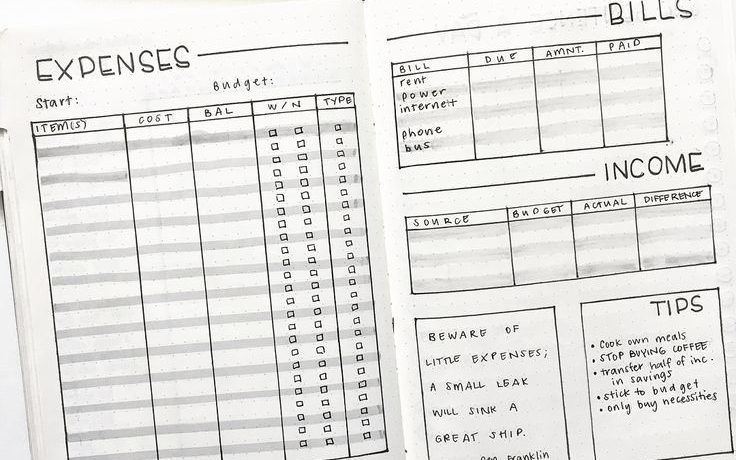 EXPENSES
Start:
Budget:
ITEM(S) COST BAL W/N TYPE
BILLS
BILL DUE AMNT. PAID
rent
power
internet
phone
bus
INCOME
SOURCE BUDGET ACTUAL DIFFERENCE
BEWARE OF
LITTLE EXPENSES;
A SMALL LEAK
WILL SINK A
GREAT SHIP.
Ben Franklin
TIPS
• Cook own meals
• STOP BUYING COFFEE
• transfer half of inc.
in savings
• stick to budget
• only buy necessities